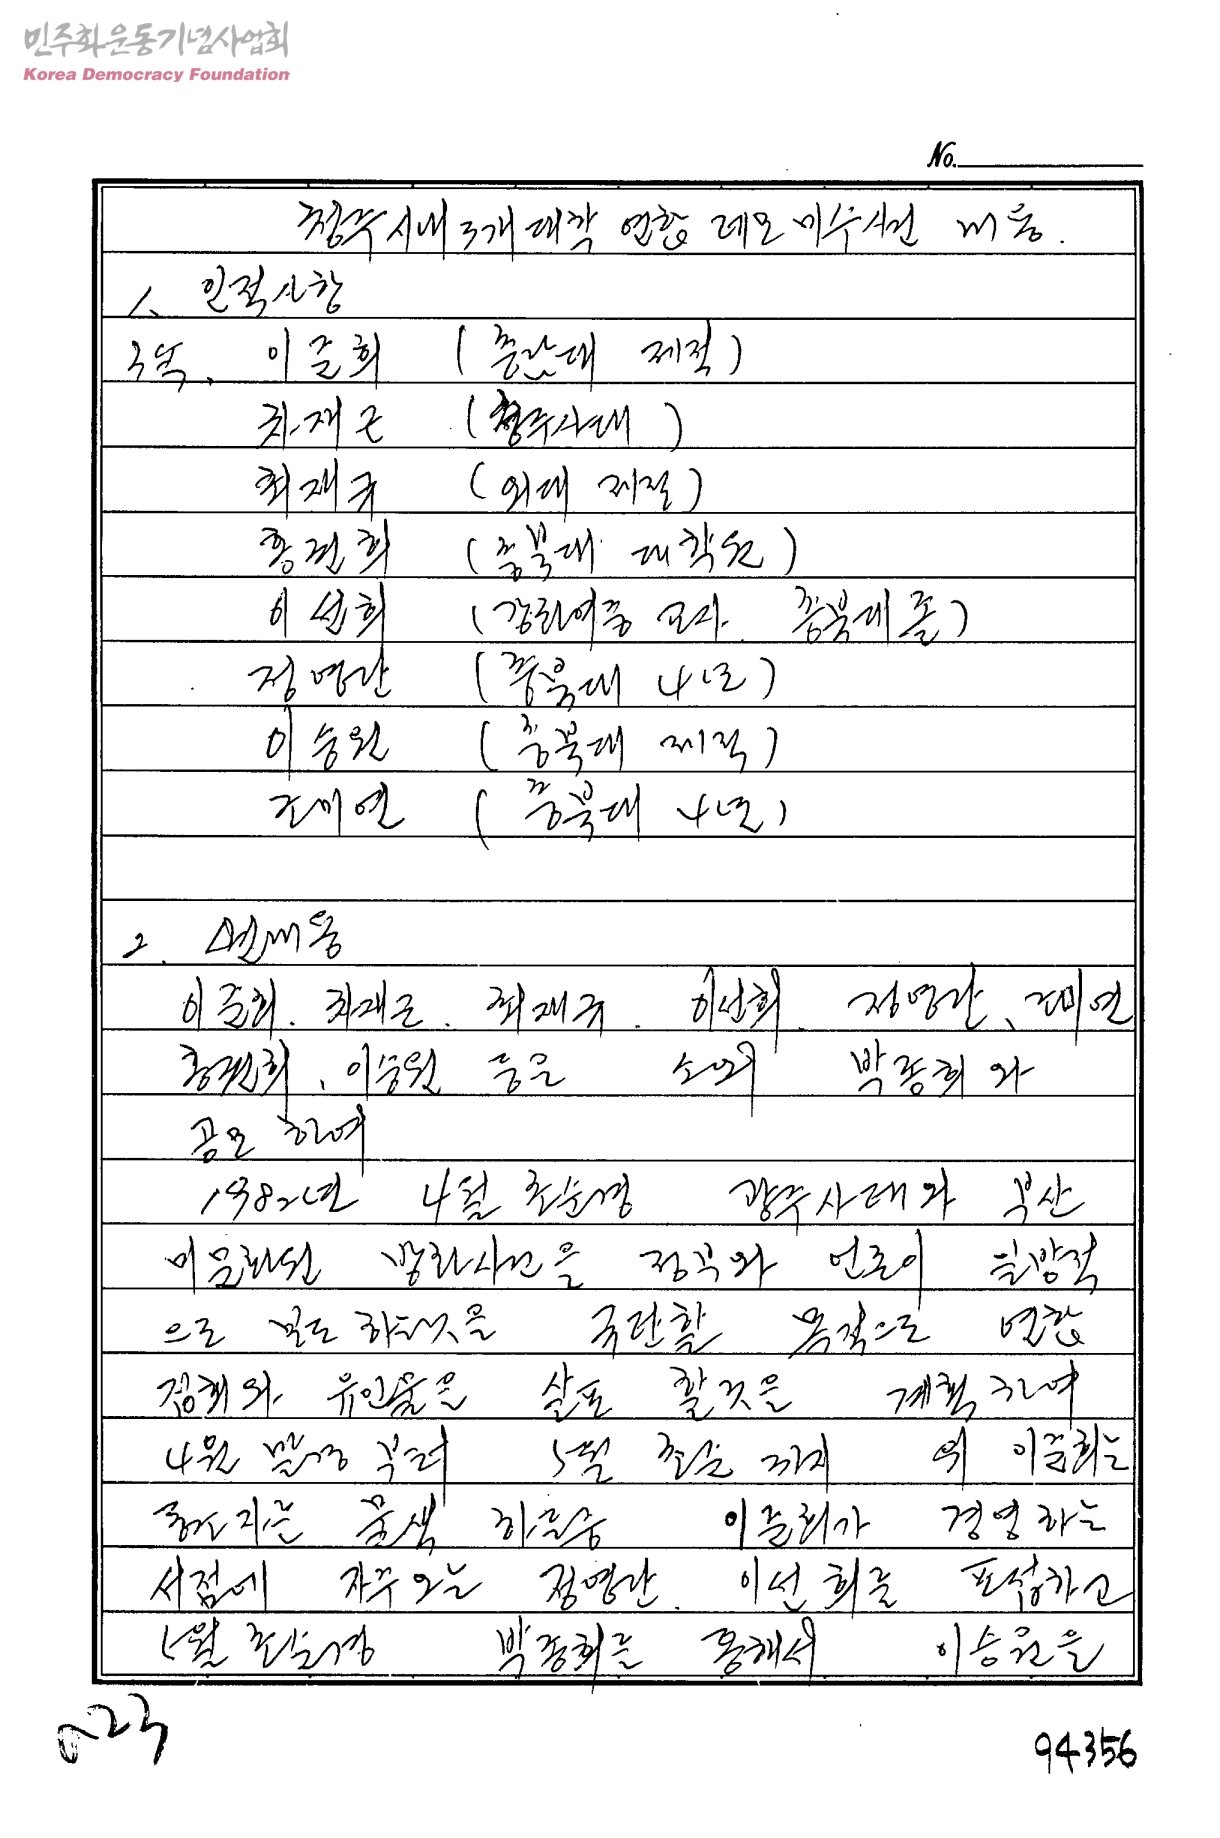 민주화운동기념사업회
Korea Democracy Foundation
No.
청주시내 3개 대학 연합 데모 미수사건 내용.
1. 인적사항
구속. 이준희 (중앙대 제적)
최재근 (청주사대)
최재규 (외대 제적)
황권희 (충북대 대학원)
이선희 (여중 교사. 충북대 졸)
정명란 (충북대 4년)
이승원 (충북대 제적)
조미연 (충북대 4년)
2. 사건내용
이준희. 최재근. 최재규. 이선희. 정명란, 조미연
황권희, 이승원 등은 소외 박종희와
공모 하여
1982년 4월 초순경 광주사태와 부산
미문화원 방화사건을 정부와 언론이 일방적
으로 보도 하는것을 규탄할 목적으로 연합
집회와 유인물을 살포 할것을 계획 하여
4월 말경 부터 5월 초순 까지 위 이준희는
동조자를 물색 하던중 이준희가 경영 하는
서점에 자주 오는 정명란. 이선희를 포섭하고
5월 초순경 박종희를 통해서 이승원을
023
94356